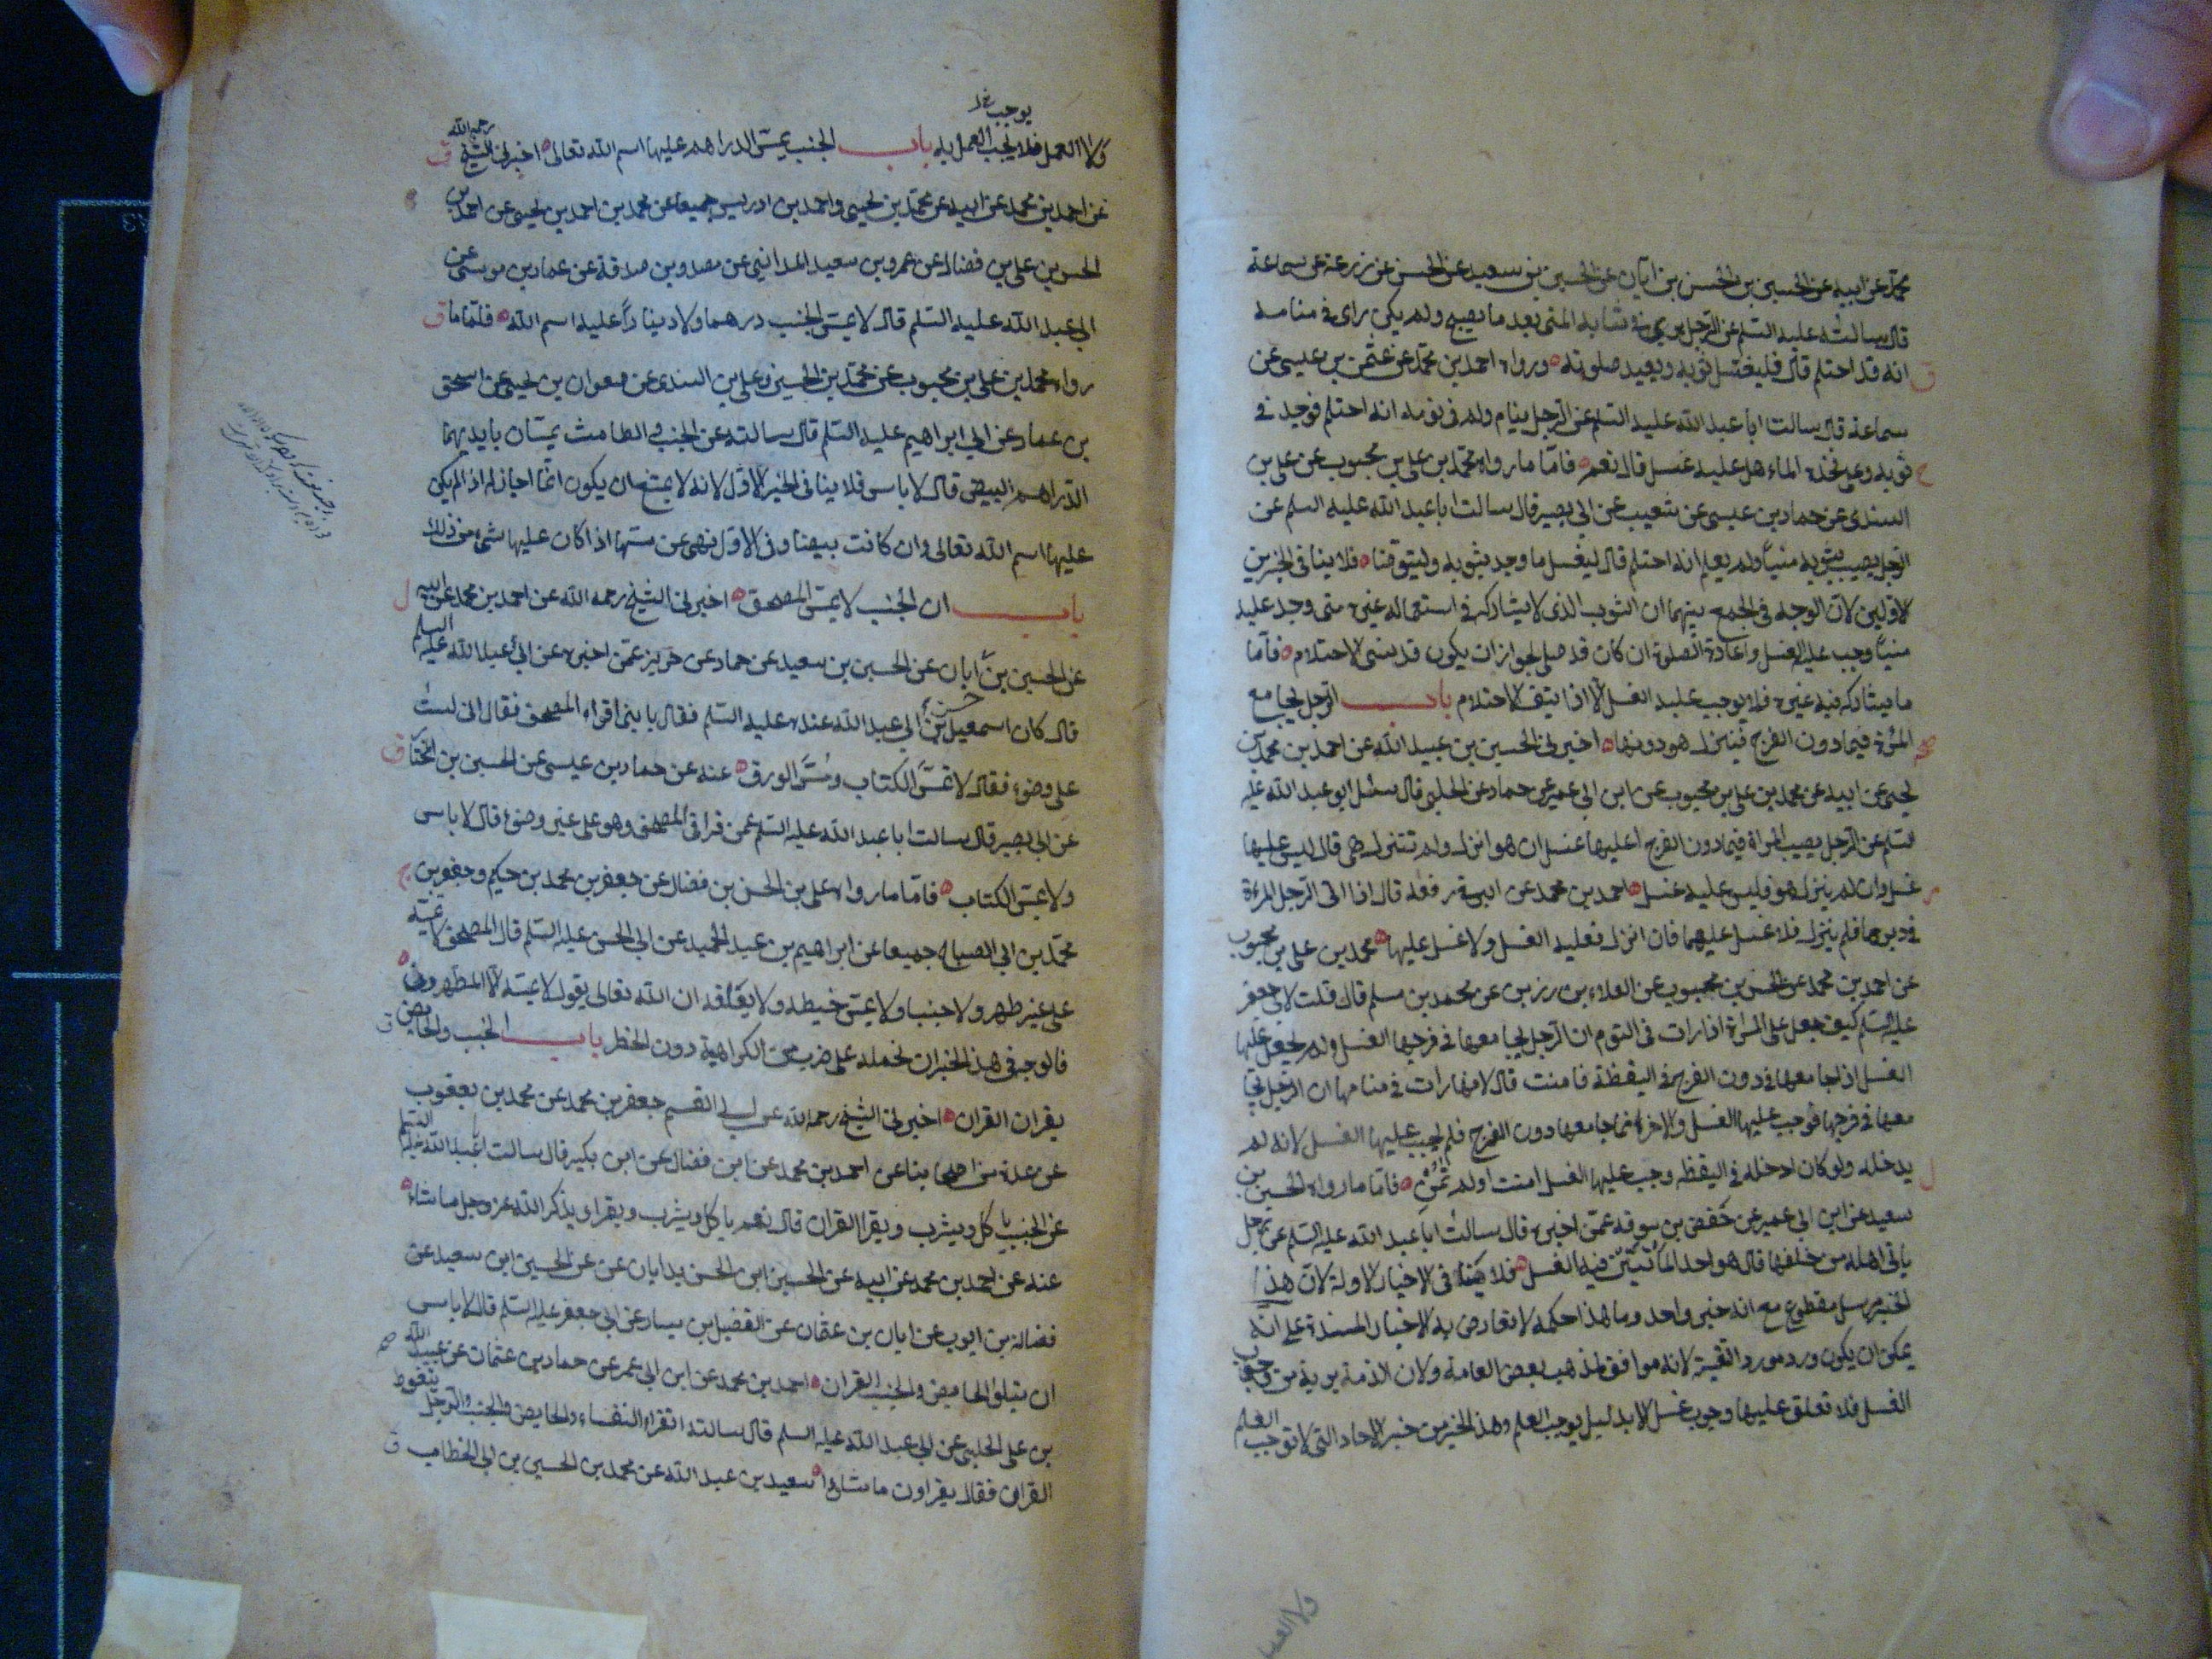 محمد عن ابيه عن الحسين بن الحسن بن ابان عن الحسين بن سعيد عن الحسن عن زرعة عن سماعة
قال سالته عليه السلم عن الرجل يرى في ثيابه المنى بعد ما يصبح ولم يكن راى في منامه
انه قد احتلم قال فليغتسل ثوبه ويعيد صلوته ورواه احمد بن محمد عن عثمن بن عيسى عن
سماعة قال سالت ابا عبد الله عليه السلم عن الرجل ينام ولم ير في نومه انه احتلم فوجد في
ثوبه وعلى فخذه الماء هل عليه غسل قال نعم فاما ما رواه محمد بن علي بن محبوب عن علي بن
السندى عن حماد بن عيسى عن شعيب عن ابي بصير قال سالت ابا عبد الله عليه السلم عن
الرجل يصيب بثوبه منيا ولم يعلم انه احتلم قال ليغسل ما وجد بثوبه وليتوضا فلا ينافى الخبرين
الاولين لان الوجه في الجمع بينهما ان الثوب الذى لا يشاركه في استعماله غيره متى وجد عليه
منيا وجب عليه الغسل واعادة الصلوة ان كان قد صلى لجواز ان يكون قد نسى الاحتلام فاما
ما يشاركه فيه غيره فلا يوجب عليه الغسل الا اذا تيقن الاحتلام باب الرجل يجامع
المرءة فيما دون الفرج فينزل هو دونها اخبرنى الحسين بن عبيد الله عن احمد بن محمد بن
يحيى عن ابيه عن محمد بن علي بن محبوب عن ابن ابي عمير عن حماد عن الحلبى قال سئل ابو عبد الله عليه
السلم عن الرجل يصيب المراة فيما دون الفرج اعليها غسل ان هو انزل ولم تنزل هي قال ليس عليها
غسل وان لم ينزل هو فليس عليه غسل احمد بن محمد عن البرقى رفعه قال اذا اتى الرجل المرءة
في دبرها فلم ينزل فلا غسل عليهما فان انزل فعليه الغسل ولا غسل عليها محمد بن علي بن محبوب
عن احمد بن محمد عن الحسن بن محبوب عن العلاء بن رزين عن محمد بن مسلم قال قلت لابى جعفر
عليه السلم كيف جعل على المراة اذا رات في النوم ان الرجل يجامعها في فرجها الغسل ولم يجعل عليها
الغسل اذا جامعها في دون الفرج في اليقظة فامنت قال لانها رات في منامها ان الرجل يجا
معها في فرجها فوجب عليها الغسل والاخرة انما جامعها دون الفرج فلم يجب عليها الغسل لانه لم
يدخله ولو كان ادخله في اليقظه وجب عليها الغسل امنت او لم تمن فاما ما رواه الحسين بن
سعيد عن ابن ابي عمير عن حفص بن سوقه عمن اخبره قال سالت ابا عبد الله عليه السلم عن رجل
ياتى اهله من خلفها قال هو احد الماتيين فيه الغسل فلا ينافى الاخبار الاولة لان هذا
الخبر مرسل مقطوع مع انه خبر واحد وما هذا حكمه لا تعارض به الاخبار المسندة على انه
يمكن ان يكون ورد مورد التقية لانه موافق لمذهب بعض العامة ولان الذمة برية من وجوب
الغسل فلا تعلق عليها وجوب غسل الا بدليل يوجب العلم وهذا الخبر من خبر الاحاد التى لا توجب العلم
ولا العمل
يوجب خ ل
ولا العمل فلا يجب العمل به باب الجنب يمس الدراهم عليها اسم الله تعالى اخبرنى الشيخ رحمه الله
عن احمد بن محمد عن ابيه عن محمد بن يحيى واحمد بن ادريس جميعا عن محمد بن احمد بن يحيى عن احمد بن
الحسن بن علي بن فضال عن عمرو بن سعيد المداينى عن مصدق بن صدقة عن عمار بن موسى عن
ابي عبد الله عليه السلم قال لا يمس الجنب درهما ولا دينارا عليه اسم الله فاما ما
رواه محمد بن علي بن محبوب عن محمد بن الحسين وعلي بن السندى عن صفوان بن يحيى عن اسحق
بن عمار عن ابي ابراهيم عليه السلم قال سالته عن الجنب والطامث يمسان بايديهما
الدراهم البيض قال لا باس فلا ينافى الخبر الاول لانه لا يمتنع ان يكون انما اجاز له اذا لم يكن
عليها اسم الله تعالى وان كانت بيضا وفى الاول نهى عن مسها اذا كان عليها شىء من ذلك
باب ان الجنب لا يمس المصحف اخبرنى الشيخ رحمه الله عن احمد بن محمد عن ابيه
عن الحسين بن ابان عن الحسين بن سعيد عن حماد عن حريز عمن اخبره عن ابي عبد الله عليه السلم
قال كان اسمعيل بن ابي عبد الله عنده عليه السلم فقال يا بنى اقراء المصحف فقال انى لست
على وضوء فقال لا تمس الكتاب ومس الورق عنه عن حماد بن عيسى عن الحسين بن المختار
عن ابي بصير قال سالت ابا عبد الله عليه السلم عمن قرا في المصحف وهو على غير وضوء قال لا باس
ولا يمس الكتاب فاما ما رواه علي بن الحسن بن فضال عن جعفر بن محمد بن حكيم وجعفر بن
محمد بن ابي الصباح جميعا عن ابراهيم بن عبد الحميد عن ابي الحسن عليه السلم قال المصحف لا تمسه
على غير طهر ولا جنبا ولا يمس خيطه ولا يعلقه ان الله تعالى يقول لا يمسه الا المطهرون
فالوجه في هذا الخبر ان نحمله على ضرب من الكراهية دون الحظر باب الجنب والحايض
يقران القران اخبرنى الشيخ رحمه الله عن ابي القسم جعفر بن محمد عن محمد بن يعقوب
عن عدة من اصحابنا عن احمد بن محمد عن ابن فضال عن ابن بكير قال سالت ابا عبد الله عليه السلم
عن الجنب ياكل ويشرب ويقرا القران قال نعم ياكل ويشرب ويقرا ويذكر الله عز وجل ما شاء
عنه عن احمد بن محمد عن ابيه عن الحسين ابن الحسن بن ابان عن عن الحسين ابن سعيد عن
فضالة بن ايوب عن ابان بن عثمان عن الفضيل بن يسار عن ابي جعفر عليه السلم قال لا باس
ان يتلو الحايض والجنب القران احمد بن محمد عن ابن ابي عمر عن حماد بن عثمان عن عبيد الله
بن علي الحلبى عن ابي عبد الله عليه السلم قال سالته اتقراء النفساء والحايض والجنب والرجل يتغوط
القران فقال يقراون ما شاؤا سعيد بن عبد الله عن محمد بن الحسين بن ابي الخطاب